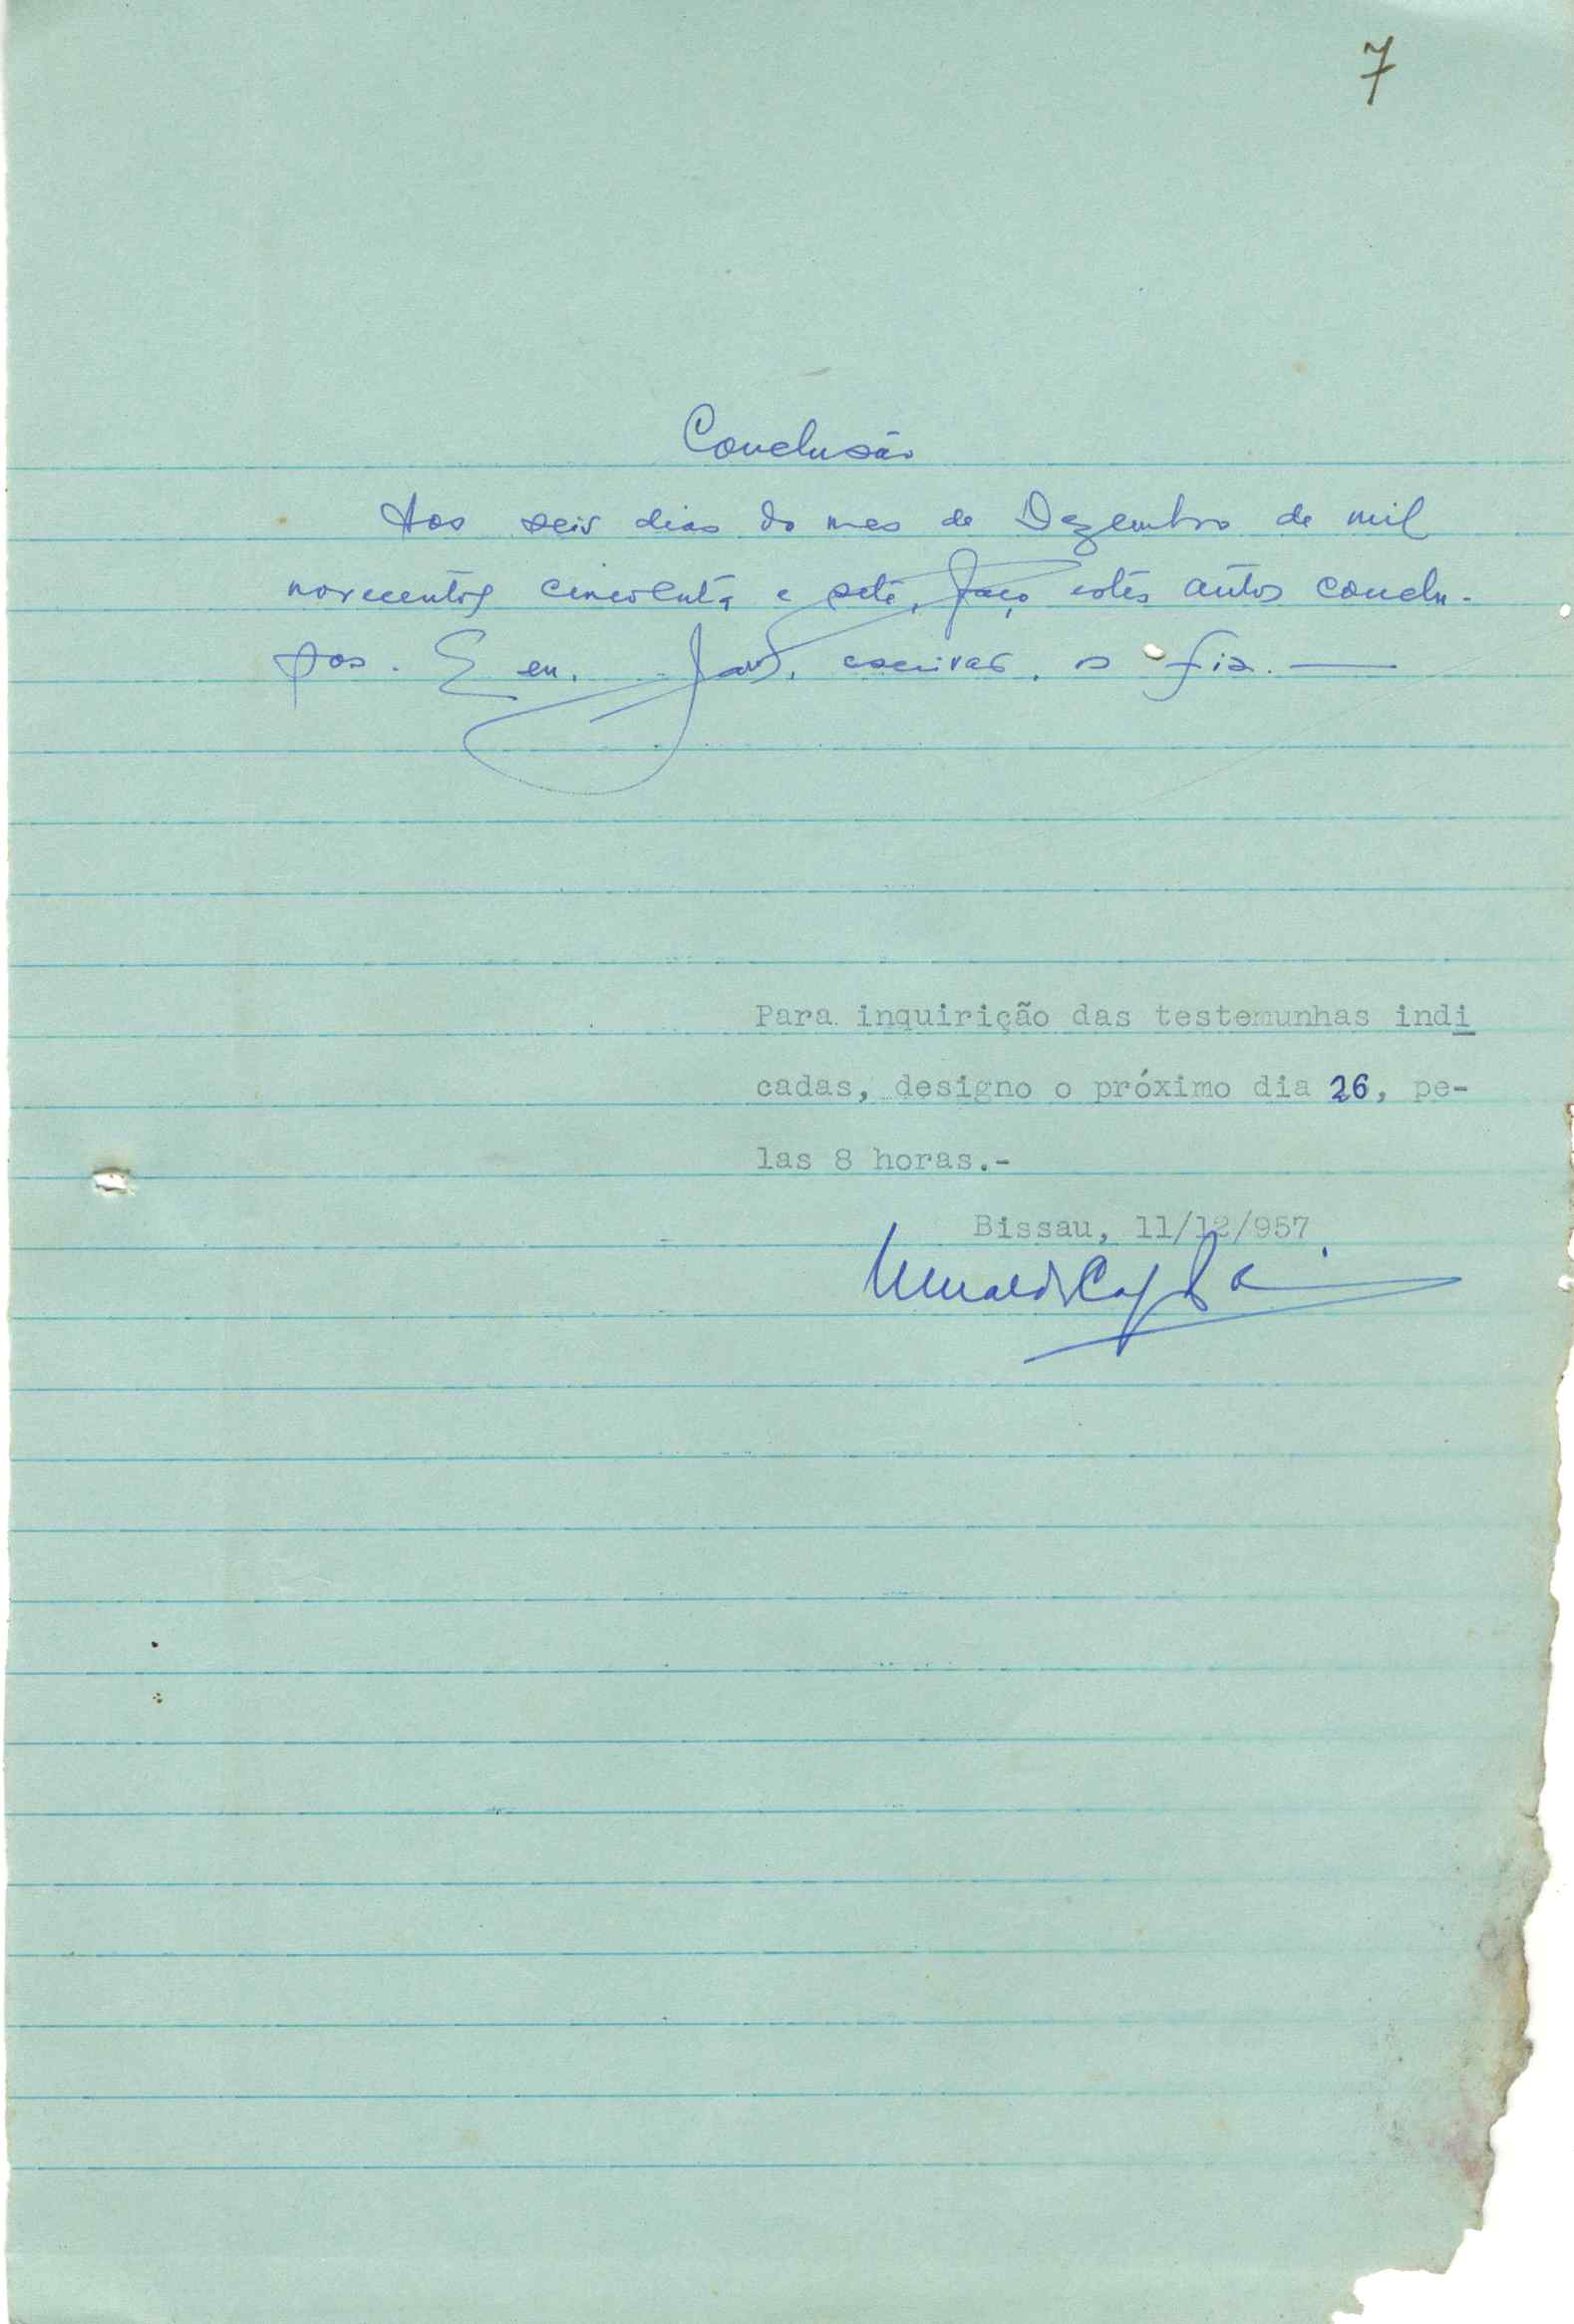 7
Conclusão
Aos seis dias do mes de Dezembro de mil
novecentos cincoenta e sete, faço estes autos conclu-
sos. E eu, escrivão, o fiz.
Para inquirição das testemunhas indi
cadas, designo o próximo dia 26, pe-
las 8 horas.-
Bissau, 11/12/957